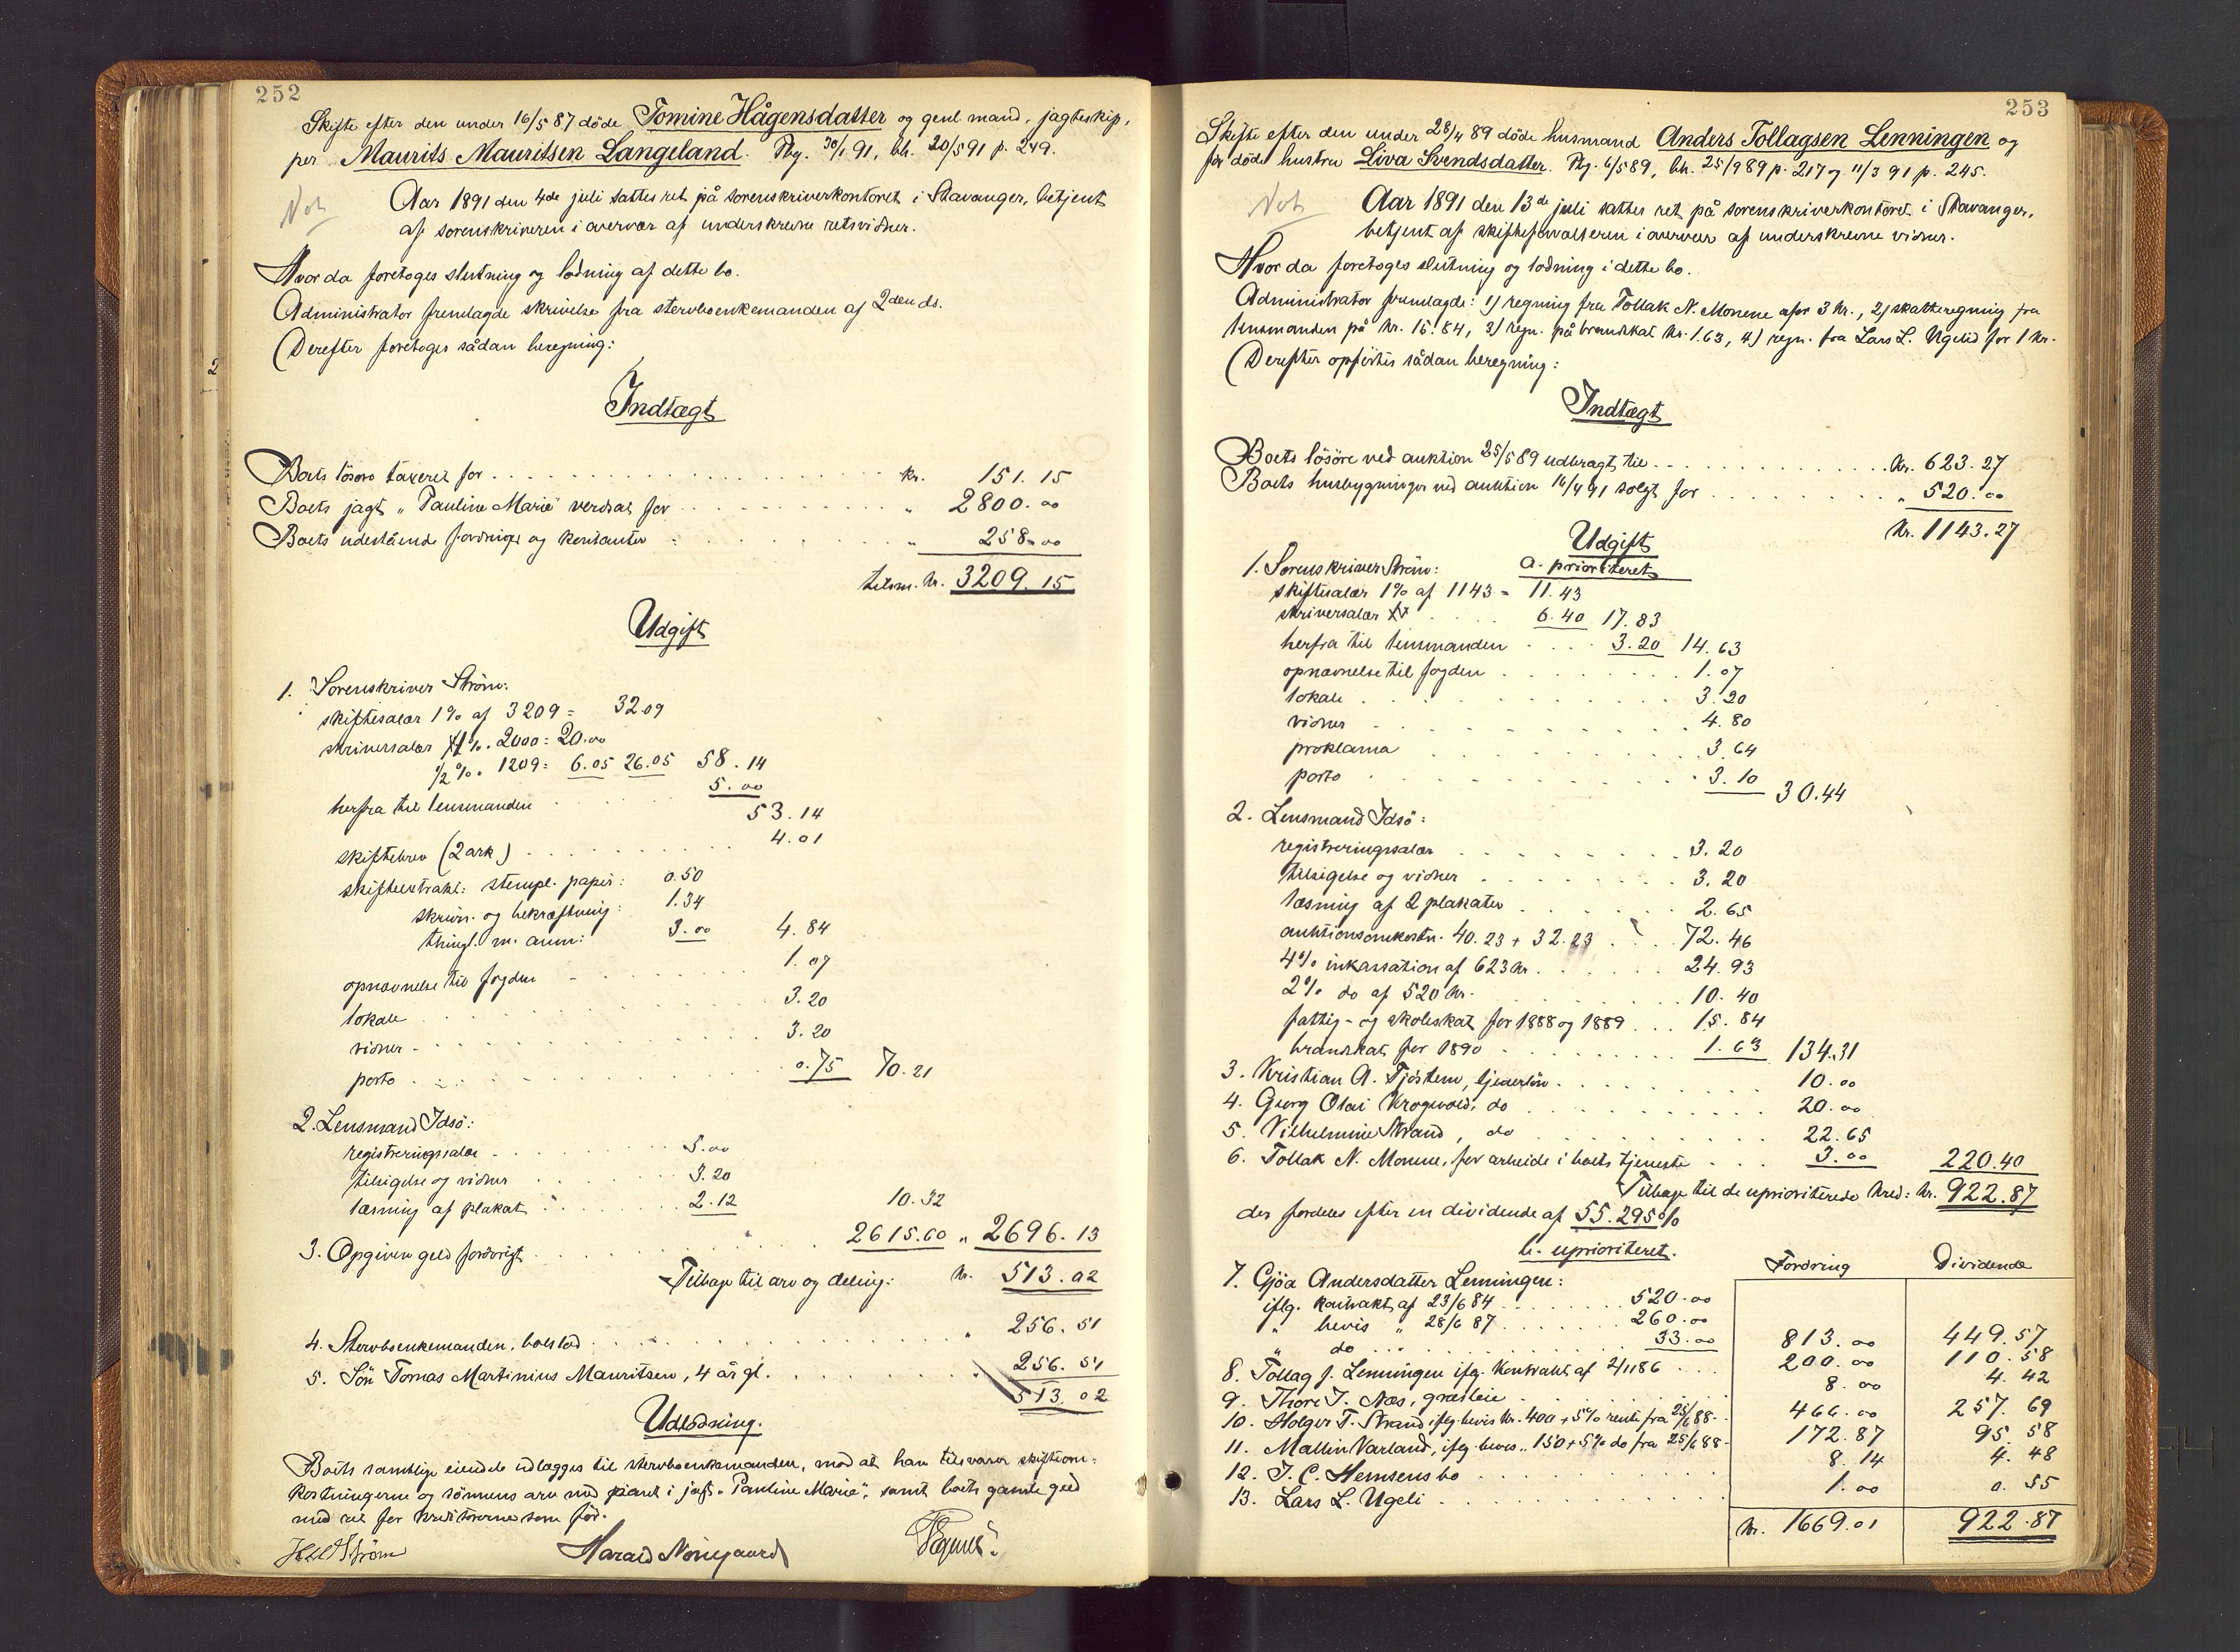 252
Skifte efter den under 16/5 87 døde Tomine Hågensdatter og genl. mand, jagteskip-
per Maurits Mauritsen Langeland. Rbg. 30/1 91, bh. 20/5 91 p. 249.
Not
Aar 1891 den 4de juli sattes ret på sorenskriverkontoret i Stavanger, betjent
af sorenskriveren i overvær af underskrevne retsvidner.
Hvorda foretoges slutning og lodning af dette bo.
Administrator fremlagde skrivelse fra stervboenkemanden af 2den ds.
Derefter foretoges sådan beregning:
Indtægt
Boets løsøre taxeret for . . . kr. 151.15
Boets jagt "Pauline Marie" verdsat for . . . " 2800.00
Boets udestående fordringer og kontanter . . . " 258.00
tilsm. kr. 3209.15
Udgift
1. Sorenskriver Strøm:
skiftesalær 1% af 3209 = 32.09
skriversalær 1%. 2000 = 20.00
1/2 %. 1209 = 6.05 26.05 58.14
herfra til lensmanden . . . 5.00
53.14
skiftebrev (2 ark) . . . 4.01
skifteextrakt: stempl. papir: 0.50
skrivn. og bekræftning: 1.34
thingl. m. ann: 3.00 4.84
opnævnelse til fogden . . . 1.07
lokale . . . 3.20
vidner . . . 3.20
porto . . . 0.75 70.21
2. Lensmand Idsø:
registreringssalær . . . 5.00
tilsigelse og vidner . . . 3.20
læsning af plakat . . . 2.12 10.32
3. Opgiven geld forøvrigt . . . 2615.60 " 2696.13
Tilbage til arv og deling: kr. 513.02
4. Stervboenkemanden, boeslod . . . " 256.51
5. Søn Tomas Martinius Mauritsen, 4 år gl. . . . " 256.51
513.02
Udlodning.
Boets samtlige eiendele udlægges til stervboenkemanden, mod at han tilsvarer skifteom-
kostningerne og sønnens arv med pant i jagt "Pauline Marie", samt boets gamle geld
med ret for kreditorerne som før.
Harald Norgaard
253
Skifte efter den under 28/4 89 døde husmand Anders Tollagsen Lenningen og
før døde hustru Liva Svendsdatter. Rbg. 6/5 89, bh. 25/9 89 p. 217 og 11/3 91 p. 245.
Not
Aar 1891 den 13de juli sattes ret på sorenskriverkontoret i Stavanger,
betjent af skifteforvalteren i overvær af underskrevne vidner.
Hvor da foretoges slutning og lodning i dette bo.
Administrator fremlagde: 1) regning fra Tollak N. Monene for 3 kr., 2) skatteregning fra
lensmanden på kr. 15.84, 3) regn. på brandskat kr. 1.63, 4) regn. fra Lars L. Ugelid for 1 kr.
Derefter opførtes sådan beregning:
Indtægt
Boets løsøre ved auktion 25/5 89 udbragt til . . . kr. 623.27
Boets husbygninger ved auktion 16/4 91 solgt for . . . " 520.00
kr. 1143.27
Udgift
a. prioriteret
1. Sorenskriver Strøm:
skiftesalær 1% af 1143 = 11.43
skriversalær . . . 6.40 17.83
herfra til lensmanden . . . 3.20 14.63
opnævnelse til fogden . . . 1.07
lokale . . . 3.20
vidner . . . 4.80
proklama . . . 3.64
porto . . . 3.10 30.44
2. Lensmand Idsø:
registreringssalær . . . 3.20
tilsigelse og vidner . . . 3.20
læsning af 2 plakater . . . 2.65
auktionsomkostn. 40.23 + 32.23 . . . 72.46
4% inkassation af 623 kr. . . . 24.93
2% do af 520 kr. . . . 10.40
fattig- og skoleskat for 1888 og 1889 . . . 15.84
brandskat for 1890 . . . 1.63 134.31
3. Kristian A. Tjøstem, tjenerløn . . . 10.00
4. Georg Olai Krogevold, do . . . 20.00
5. Vilhelmine Strand, do . . . 22.65
6. Tollak N. Monene, for arbeide i boets tjeneste . . . 3.00 220.40
Tilbage til de uprioriterede kred: kr. 922.87
der fordeles efter en dividende af 55.295%
b. uprioriteret. Fordring Dividende
7. Gjøa Andersdatter Lenningen:
iflg. kontrakt af 23/6 84 . . . 520.00
" bevis " 28/6 87 . . . 260.00
" do . . . 33.00 813.00 449.57
8. Tollag J. Lenningen iflg. kontrakt af 2/11 86 . . . 200.00 110.58
9. Thore T. Næs, græsleie . . . 8.00 4.42
10. Holger T. Strand iflg. bevis kr. 400 + 5% rente fra 25/6 88 . . 466.00 257.69
11. Mallin Varland, iflg. bevis " 150 + 5% do fra 25/6 88 . . 172.87 95.58
12. J. C. Hemsens bo . . . 8.14 4.48
13. Lars L. Ugeli . . . 1.00 0.55
kr. 1669.01 922.87